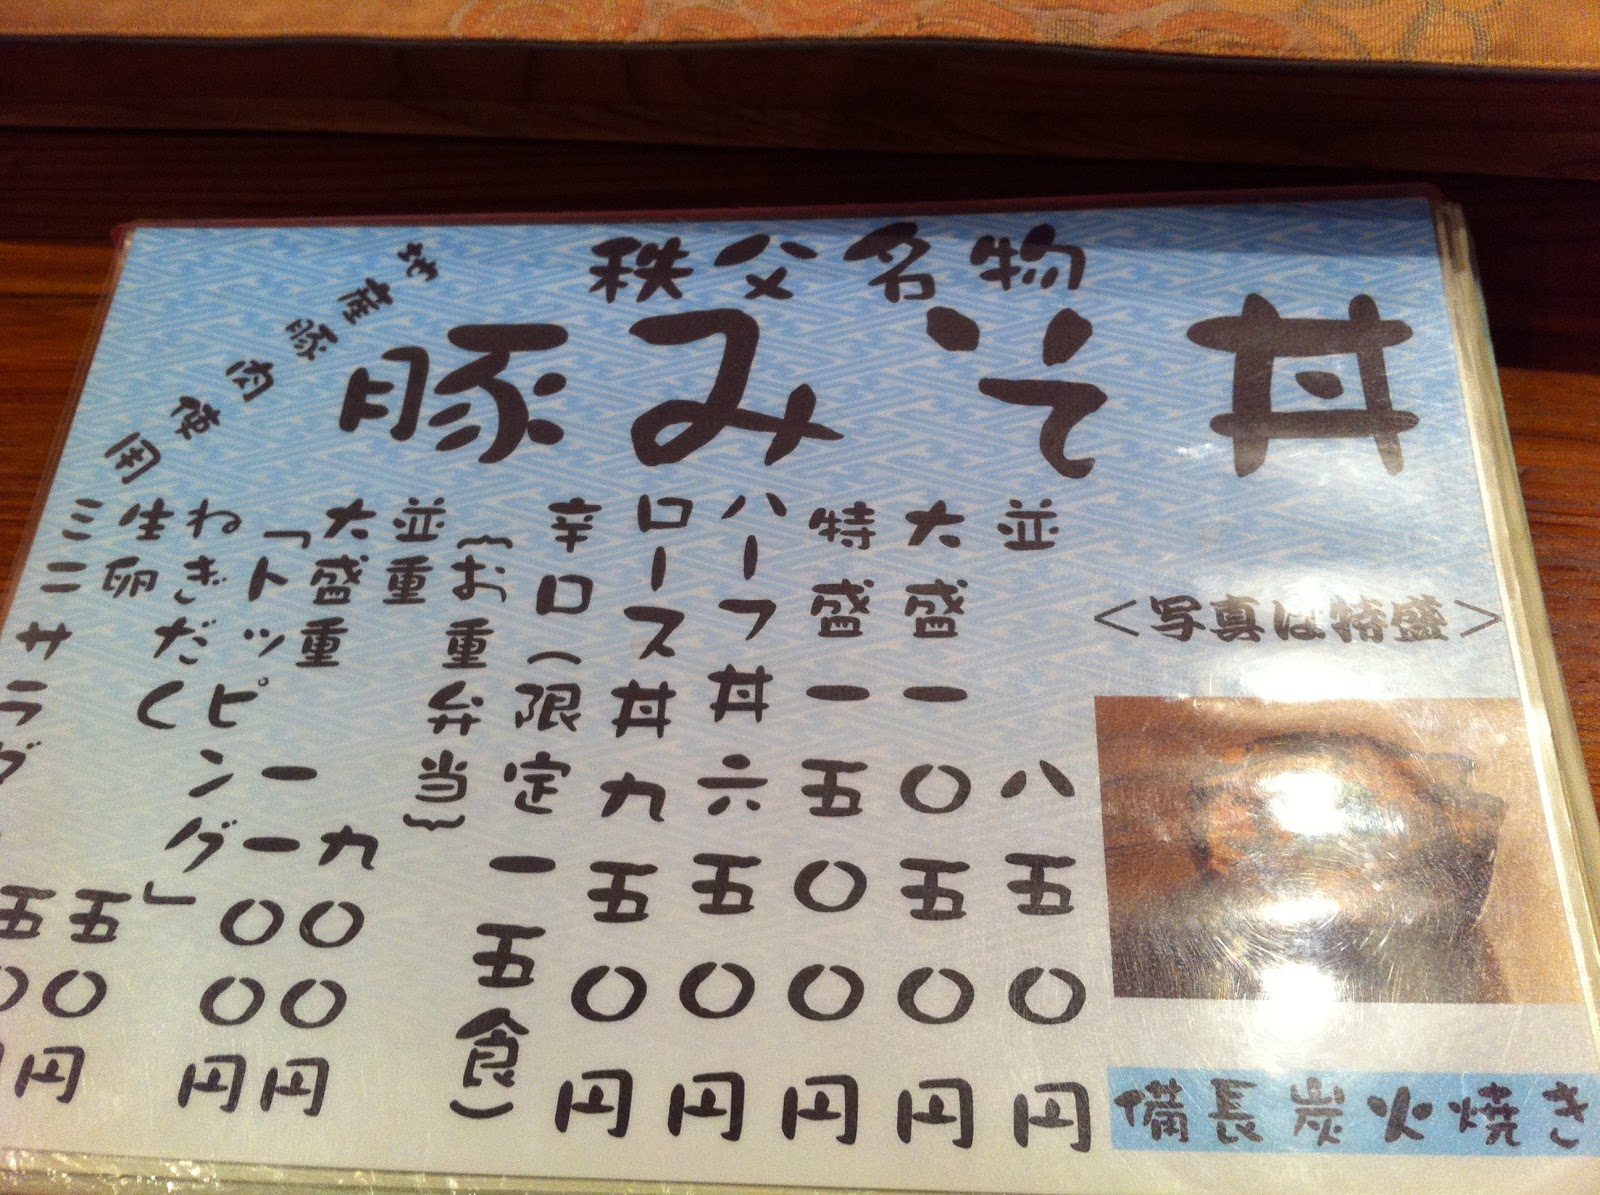 秩父名物
豚みそ丼
地産豚肉使用
＜写真は特盛＞
備長炭火焼き
並　八五〇円
大盛　一〇五〇円
特盛　一五〇〇円
ハーフ丼　六五〇円
ロース丼　九五〇円
辛口（限定一五食）
｛お重弁当｝
並重　九〇〇円
大盛重　一一〇〇円
「トッピング」
ねぎだく　五〇円
生卵　五〇円
ミニサラダ